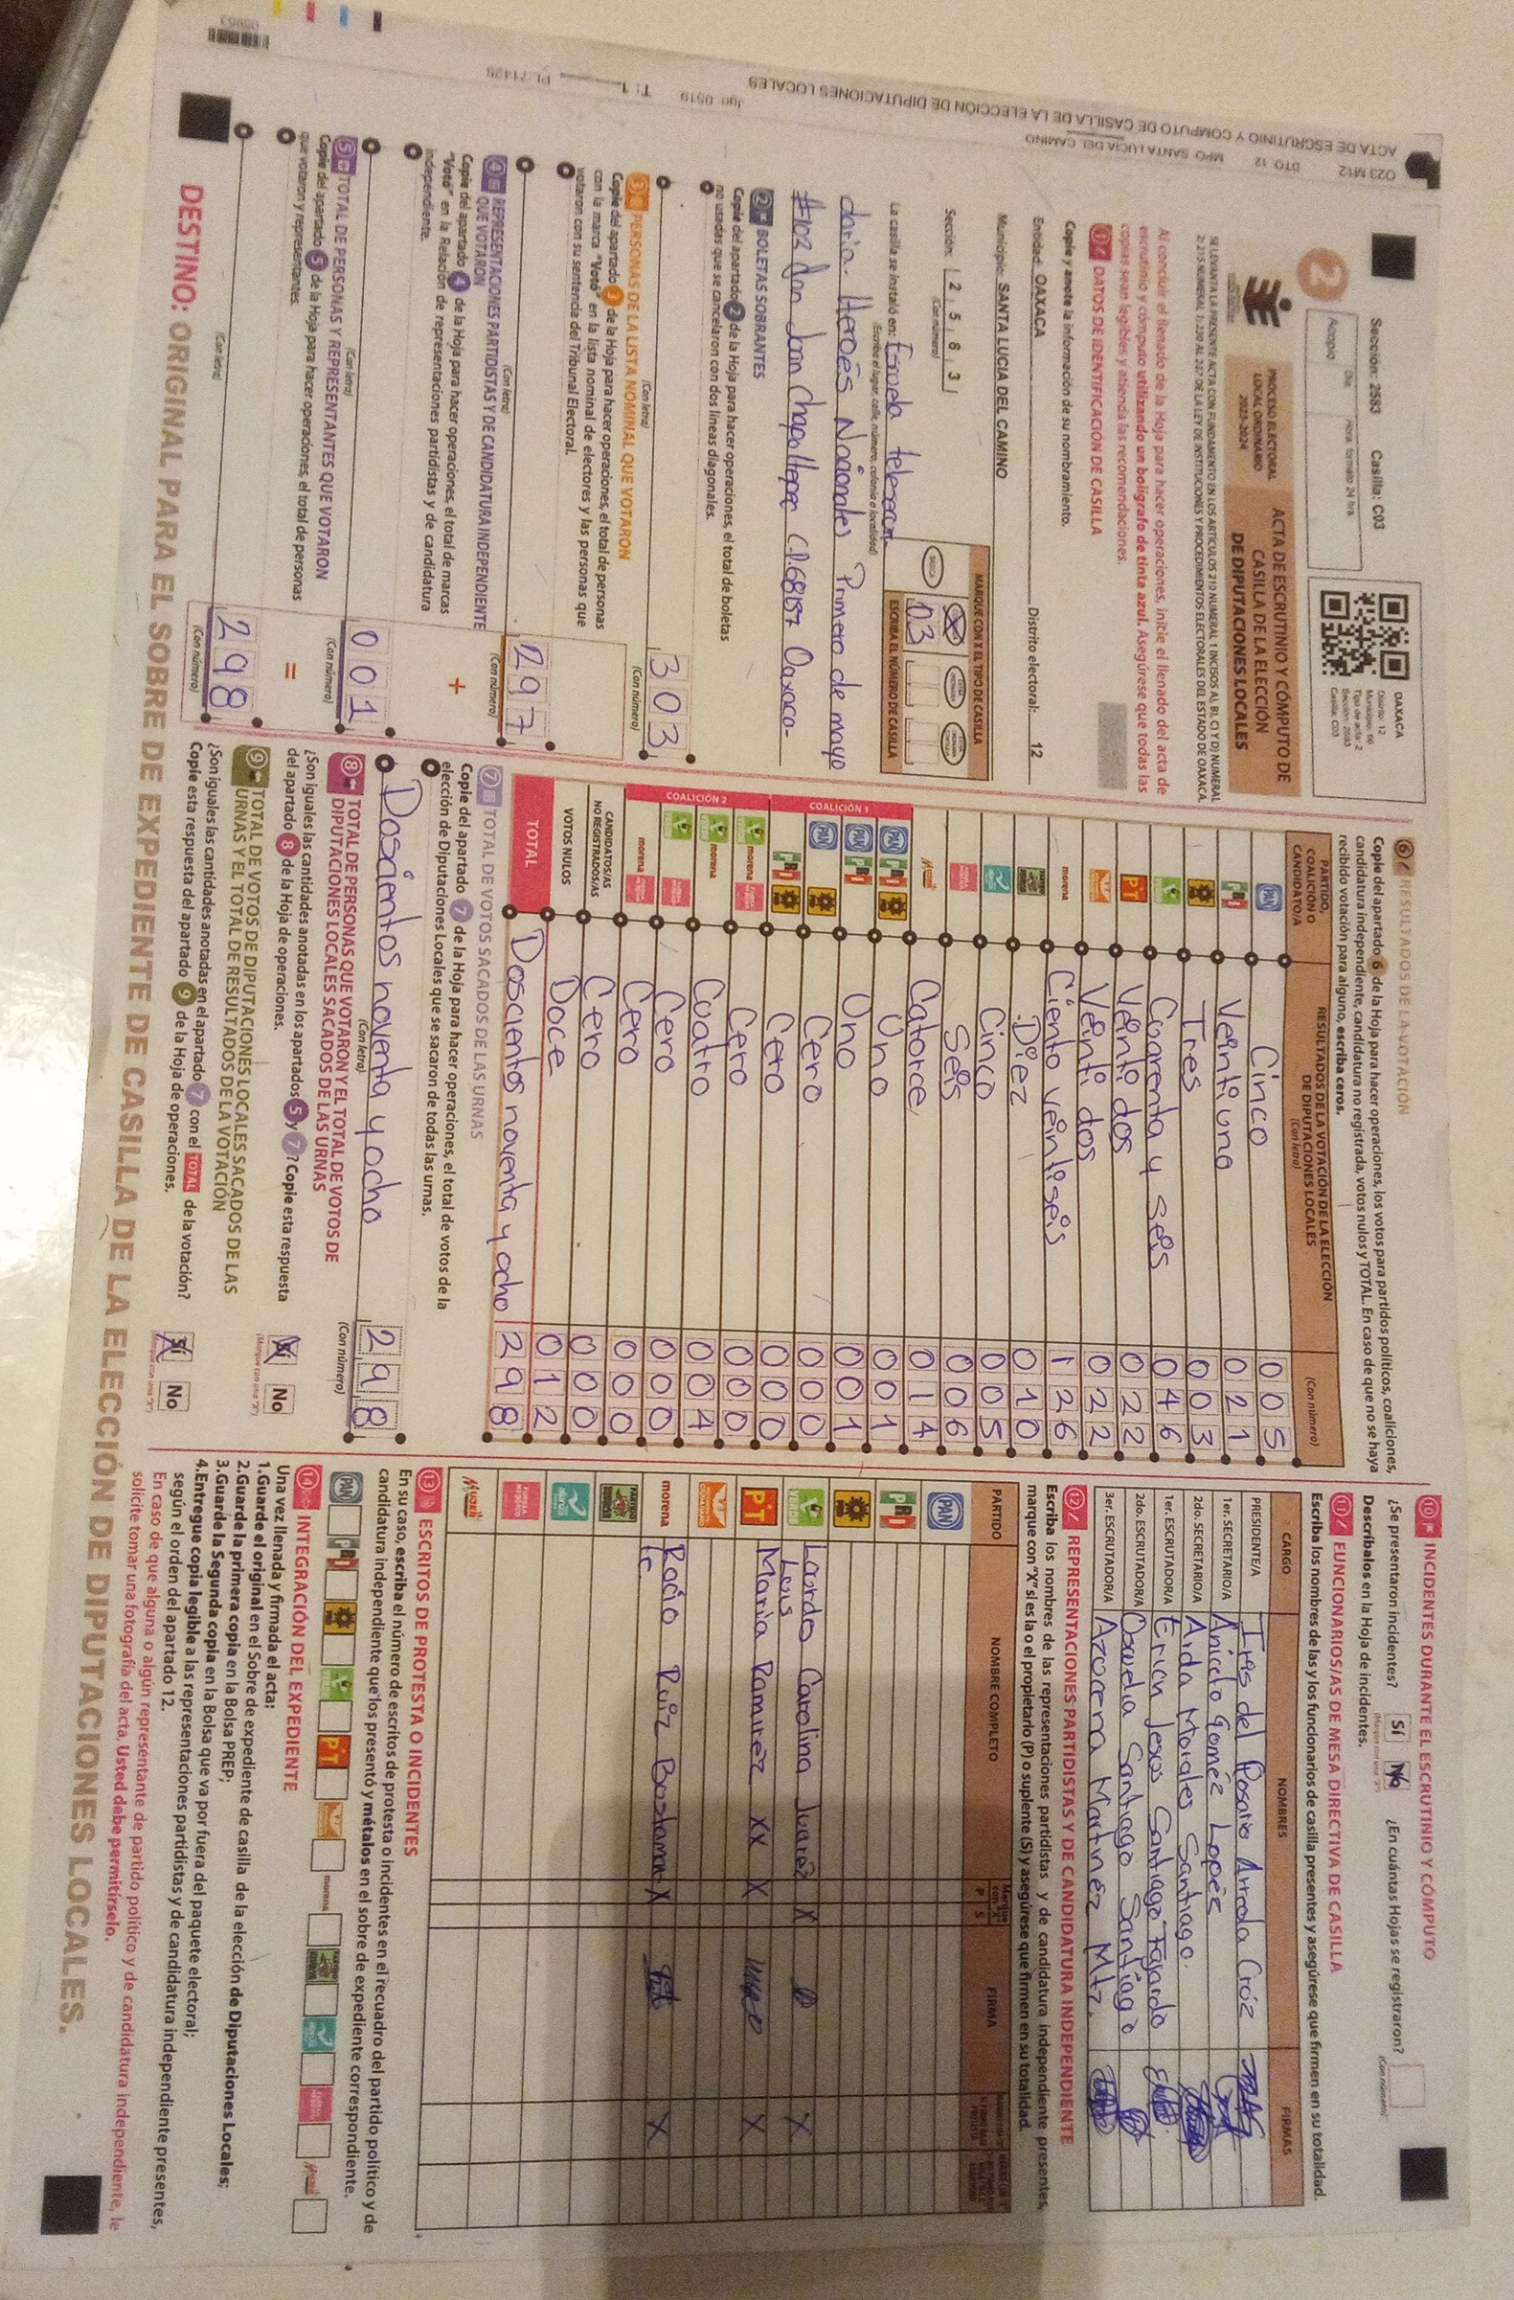 O23 M12 DTO 12 MPO SANTA LUCIA DEL CAMINO
ACTA DE ESCRUTINIO Y CÓMPUTO DE CASILLA DE LA ELECCIÓN DE DIPUTACIONES LOCALES
Jgo: 0519 T: 1 PL 71425
Sección: 2583 Casilla: C03
Día Hora: formato 24 hrs.
Acopio
2
OAXACA
Distrito: 12
Tipo de acta: 2
Sección: 2583
Casilla: C03
PROCESO ELECTORAL
LOCAL ORDINARIO
2023-2024
ACTA DE ESCRUTINIO Y CÓMPUTO DE
CASILLA DE LA ELECCIÓN
DE DIPUTACIONES LOCALES
Al concluir el llenado de la Hoja para hacer operaciones, inicie el llenado del acta de
escrutinio y cómputo utilizando un bolígrafo de tinta azul. Asegúrese que todas las
copias sean legibles y atienda las recomendaciones.
1 DATOS DE IDENTIFICACIÓN DE CASILLA
Copie y anote la información de su nombramiento.
Entidad: OAXACA Distrito electoral: 12
Municipio: SANTA LUCIA DEL CAMINO
Sección: 2 5 8 3
(Con número)
MARQUE CON X EL TIPO DE CASILLA
ESCRIBA EL NÚMERO DE CASILLA
03
La casilla se instaló en: Escuela telesecun-
(Escriba el lugar, calle, número, colonia o localidad)
daria. Heroés Nacionales Primero de mayo
#102 Don Juan Chapultepec C.P.68157 Oaxaca.
2 BOLETAS SOBRANTES
Copie del apartado 2 de la Hoja para hacer operaciones, el total de boletas
no usadas que se cancelaron con dos líneas diagonales.
303
(Con letra) (Con número)
3 PERSONAS DE LA LISTA NOMINAL QUE VOTARON
Copie del apartado 3 de la Hoja para hacer operaciones, el total de personas
con la marca "Votó" en la lista nominal de electores y las personas que
votaron con su sentencia del Tribunal Electoral.
297
(Con letra) (Con número)
4 REPRESENTACIONES PARTIDISTAS Y DE CANDIDATURA INDEPENDIENTE
QUE VOTARON
Copie del apartado 4 de la Hoja para hacer operaciones, el total de marcas
"Votó" en la Relación de representaciones partidistas y de candidatura
independiente.
+
001
(Con letra) (Con número)
5 TOTAL DE PERSONAS Y REPRESENTANTES QUE VOTARON
Copie del apartado 5 de la Hoja para hacer operaciones, el total de personas
que votaron y representantes.
=
298
(Con letra) (Con número)
6 RESULTADOS DE LA VOTACIÓN
Copie del apartado 6 de la Hoja para hacer operaciones, los votos para partidos políticos, coaliciones,
candidatura independiente, candidatura no registrada, votos nulos y TOTAL. En caso de que no se haya
recibido votación para alguno, escriba ceros.
PARTIDO, COALICIÓN O CANDIDATO/A
RESULTADOS DE LA VOTACIÓN DE LA ELECCIÓN
DE DIPUTACIONES LOCALES
(Con letra) (Con número)
PAN Cinco 005
PRI Veintiuno 021
PRD Tres 003
VERDE Cuarenta y seis 046
PT Veinti dos 022
Veinti dos 022
morena Ciento veintiseis 126
Diez 010
Cinco 005
Seis 006
Mujer Catorce 014
COALICIÓN 1
PAN PRI PRD Uno 001
PAN PRI Uno 001
PAN PRD Cero 000
PRI PRD Cero 000
COALICIÓN 2
VERDE morena Cero 000
VERDE morena Cuatro 004
VERDE Cero 000
morena Cero 000
CANDIDATOS/AS
NO REGISTRADOS/AS Cero 000
VOTOS NULOS Doce 012
TOTAL Doscientos noventa y ocho 298
7 TOTAL DE VOTOS SACADOS DE LAS URNAS
Copie del apartado 7 de la Hoja para hacer operaciones, el total de votos de la
elección de Diputaciones Locales que se sacaron de todas las urnas.
Doscientos noventa y ocho 298
(Con letra) (Con número)
8 TOTAL DE PERSONAS QUE VOTARON Y EL TOTAL DE VOTOS DE
DIPUTACIONES LOCALES SACADOS DE LAS URNAS
¿Son iguales las cantidades anotadas en los apartados 5 y 7? Copie esta respuesta
del apartado 8 de la Hoja de operaciones.
Sí No
9 TOTAL DE VOTOS DE DIPUTACIONES LOCALES SACADOS DE LAS
URNAS Y EL TOTAL DE RESULTADOS DE LA VOTACIÓN
¿Son iguales las cantidades anotadas en el apartado 7 con el TOTAL de la votación?
Copie esta respuesta del apartado 9 de la Hoja de operaciones.
Sí No
10 INCIDENTES DURANTE EL ESCRUTINIO Y CÓMPUTO
¿Se presentaron incidentes? Sí No ¿En cuántas Hojas se registraron?
(Con número)
Descríbalos en la Hoja de incidentes.
11 FUNCIONARIOS/AS DE MESA DIRECTIVA DE CASILLA
Escriba los nombres de las y los funcionarios de casilla presentes y asegúrese que firmen en su totalidad.
CARGO NOMBRES FIRMAS
PRESIDENTE/A Iris del Rosario Arreola Cruz
1er. SECRETARIO/A Aniceto Goméz Lopéz
2do. SECRETARIO/A Aida Morales Santiago.
1er. ESCRUTADOR/A Erich Jesus Santiago Fajardo
2do. ESCRUTADOR/A Osuelia Santiago Santiago
3er. ESCRUTADOR/A Azucena Martinez Mtz.
12 REPRESENTACIONES PARTIDISTAS Y DE CANDIDATURA INDEPENDIENTE
Escriba los nombres de las representaciones partidistas y de candidatura independiente presentes,
marque con "X" si es la o el propietario (P) o suplente (S) y asegúrese que firmen en su totalidad.
PARTIDO NOMBRE COMPLETO Marque con "X" P S FIRMA
PAN
PRI
PRD
VERDE Lourdes Carolina Juaréz X X
Luis
PT Maria Ramirez XX X X
morena Rocio Ruiz Bustamante X X
Mujer
13 ESCRITOS DE PROTESTA O INCIDENTES
En su caso, escriba el número de escritos de protesta o incidentes en el recuadro del partido político y de
candidatura independiente que los presentó y métalos en el sobre de expediente correspondiente.
PAN PRI PRD VERDE PT morena
14 INTEGRACIÓN DEL EXPEDIENTE
Una vez llenada y firmada el acta:
1.Guarde el original en el Sobre de expediente de casilla de la elección de Diputaciones Locales;
2.Guarde la primera copia en la Bolsa PREP;
3.Guarde la Segunda copia en la Bolsa que va por fuera del paquete electoral;
4.Entregue copia legible a las representaciones partidistas y de candidatura independiente presentes,
según el orden del apartado 12.
En caso de que alguna o algún representante de partido político y de candidatura independiente, le
solicite tomar una fotografía del acta, Usted debe permitírselo.
DESTINO: ORIGINAL PARA EL SOBRE DE EXPEDIENTE DE CASILLA DE LA ELECCIÓN DE DIPUTACIONES LOCALES.